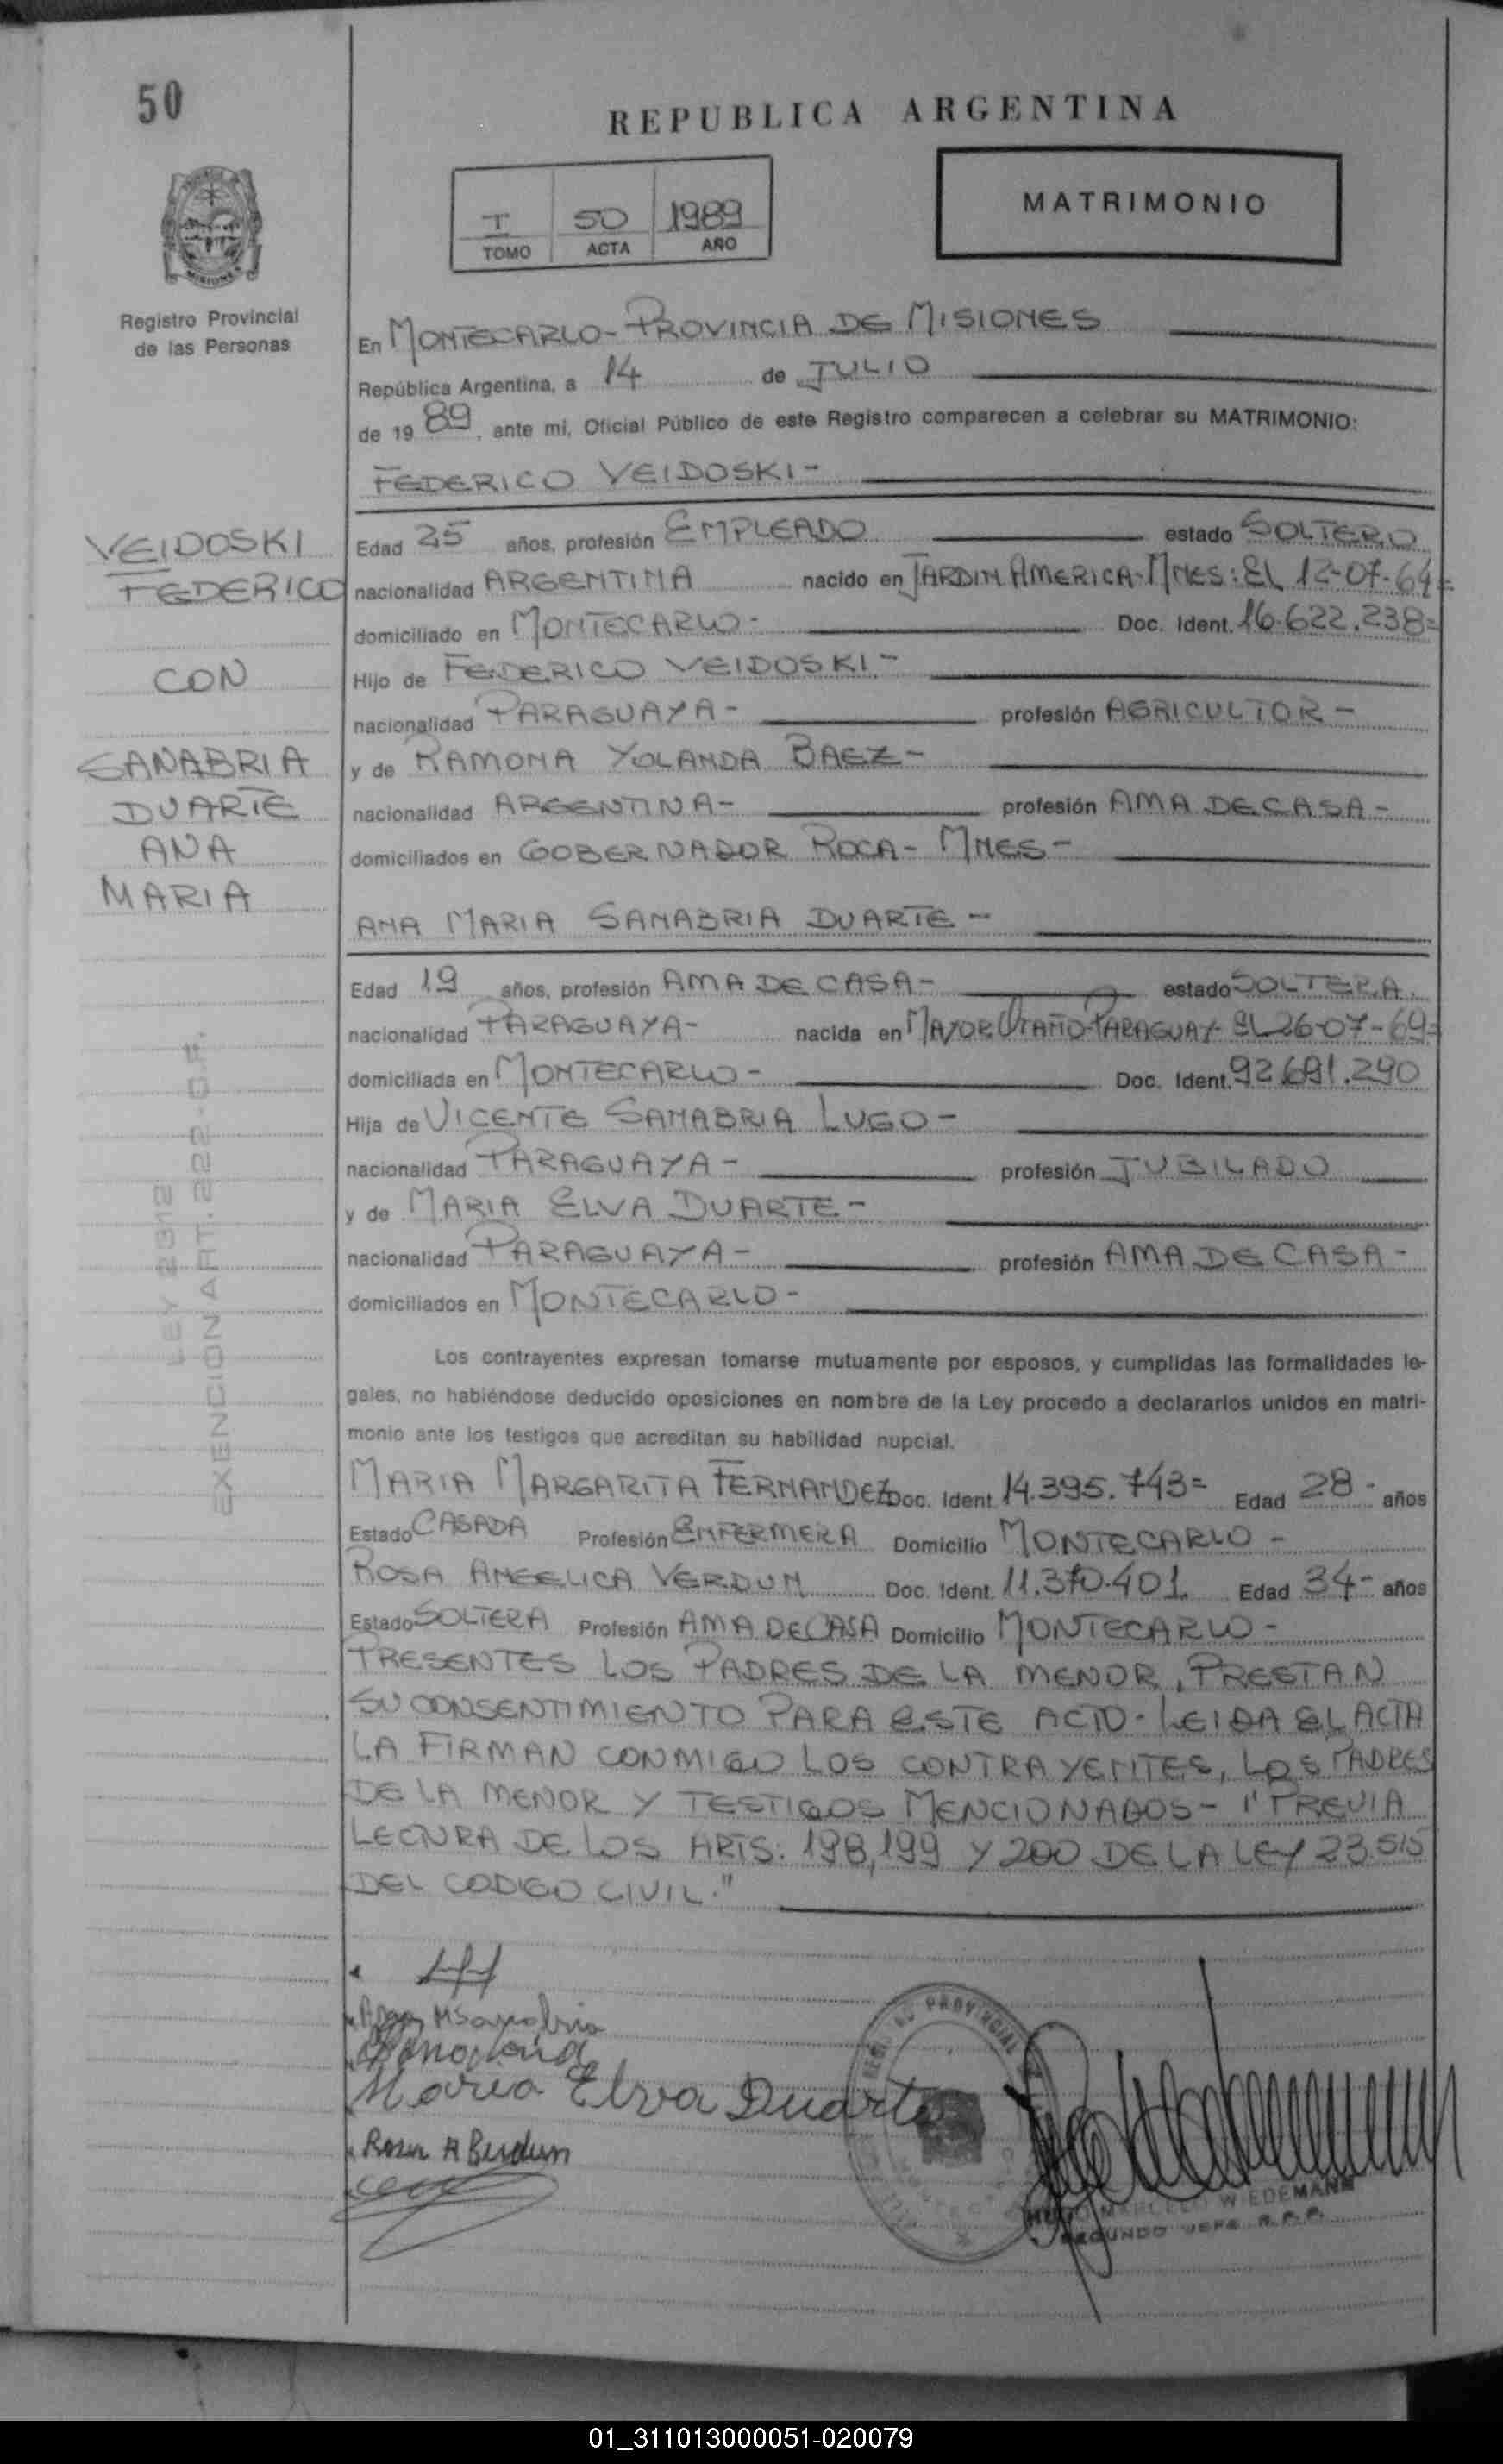 50
REPUBLICA ARGENTINA
MATRIMONIO
I 50 1989
TOMO ACTA AÑO
MISIONES
Registro Provincial
de las Personas
En MONTECARLO-PROVINCIA DE MISIONES
República Argentina, a 14 de JULIO
de 1989, ante mi, Oficial Público de este Registro comparecen a celebrar su MATRIMONIO:
FEDERICO VEIDOSKI-
VEIDOSKI
FEDERICO
CON
SANABRIA
DUARTE
ANA
MARIA
Edad 25 años, profesión EMPLEADO estado SOLTERO
nacionalidad ARGENTINA nacido en JARDIN AMERICA-MNES: EL 12-07-64=
domiciliado en MONTECARLO- Doc. Ident. 16.622.238=
Hijo de FEDERICO VEIDOSKI-
nacionalidad PARAGUAYA- profesión AGRICULTOR-
y de RAMONA YOLANDA BAEZ-
nacionalidad ARGENTINA- profesión AMA DE CASA-
domiciliados en GOBERNADOR ROCA- MNES-
ANA MARIA SANABRIA DUARTE-
Edad 19 años, profesión AMA DE CASA- estado SOLTERA.
nacionalidad PARAGUAYA- nacida en MAYOR OTAÑO-PARAGUAY- EL 26-07-69=
domiciliada en MONTECARLO- Doc. Ident. 92.691.290
Hija de VICENTE SANABRIA LUGO-
nacionalidad PARAGUAYA- profesión JUBILADO
y de MARIA ELVA DUARTE-
nacionalidad PARAGUAYA- profesión AMA DE CASA-
domiciliados en MONTECARLO-
LEY 2312
EXENCION ART. 22-O.F.
Los contrayentes expresan tomarse mutuamente por esposos, y cumplidas las formalidades le-
gales, no habiéndose deducido oposiciones en nombre de la Ley procedo a declararlos unidos en matri-
monio ante los testigos que acreditan su habilidad nupcial.
MARIA MARGARITA FERNANDEZ Doc. Ident. 14.395.743= Edad 28- años
Estado CASADA Profesión ENFERMERA Domicilio MONTECARLO-
ROSA ANGELICA VERDUN Doc. Ident. 11.370.401 Edad 34- años
Estado SOLTERA Profesión AMA DE CASA Domicilio MONTECARLO-
PRESENTES LOS PADRES DE LA MENOR, PRESTAN
SU CONSENTIMIENTO PARA ESTE ACTO- LEIDA EL ACTA
LA FIRMAN CONMIGO LOS CONTRAYENTES, LOS PADRES
DE LA MENOR Y TESTIGOS MENCIONADOS- "PREVIA
LECTURA DE LOS ARTS: 198,199 Y 200 DE LA LEY 23.515
DEL CODIGO CIVIL."
Ana M Sanabria
Maria Elva Duarte
Rosa A Berdun
MARCELO WIEDEMANN
SEGUNDO JEFE R.P.P.
01_311013000051-020079